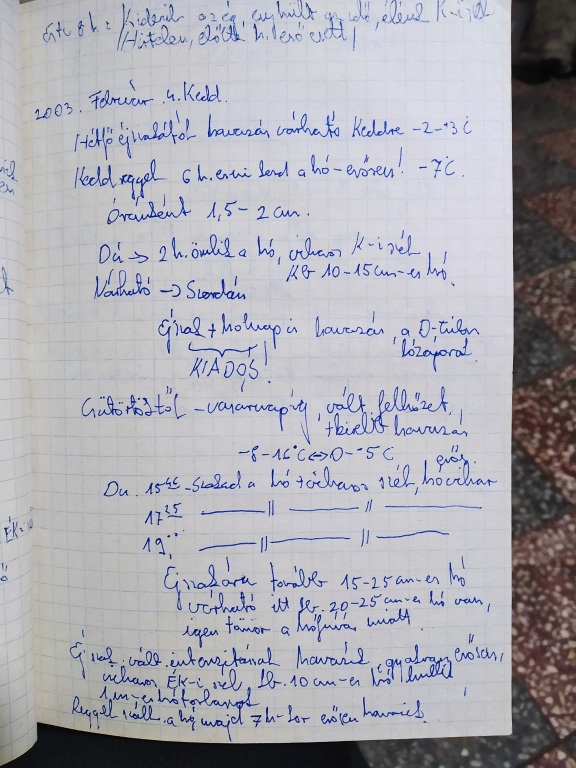 Kiderült az ég, enyhült az idő, élénk K-i szél
(Hirtelen, előtte h. erő vett)
2003. Február 4. Kedd.
Hétfő éjszakától havazás várható Keddre -2-+3°C
Kedd reggel 6 h. esni kezd a hó-erősen! -7°C.
Óránként 1,5-2 cm.
Du → 2 h. ömlik a hó, viharos K-i szél
Kb 10-15 cm-es hó.
Várható → Szerdán
Éjszaka + holnap is havazás, a D-túlon
hózáporok
KIADÓS!
Csütörtöktől - vasárnapig, vált. felhőzet,
havazás
-8-16°C ↔ 0--5°C
erős
Du. 15 45 - Szakad a hó + viharos szél, hóvihar
17 25 — 〃 — 〃 —
19. — 〃 — 〃 —
Éjszakára további 15-25 cm-es hó
várható itt kb. 20-25 cm-es hó van,
igen tömör a hófúvás miatt.
Éjszaka vált. intenzitású havazás, gyakran erősen,
viharos ÉK-i szél, kb. 10 cm-es hó hullik
1 m-es hótorlaszok
Reggel száll. a hó majd 7 h-kor erősen havazik.
ÉK-i